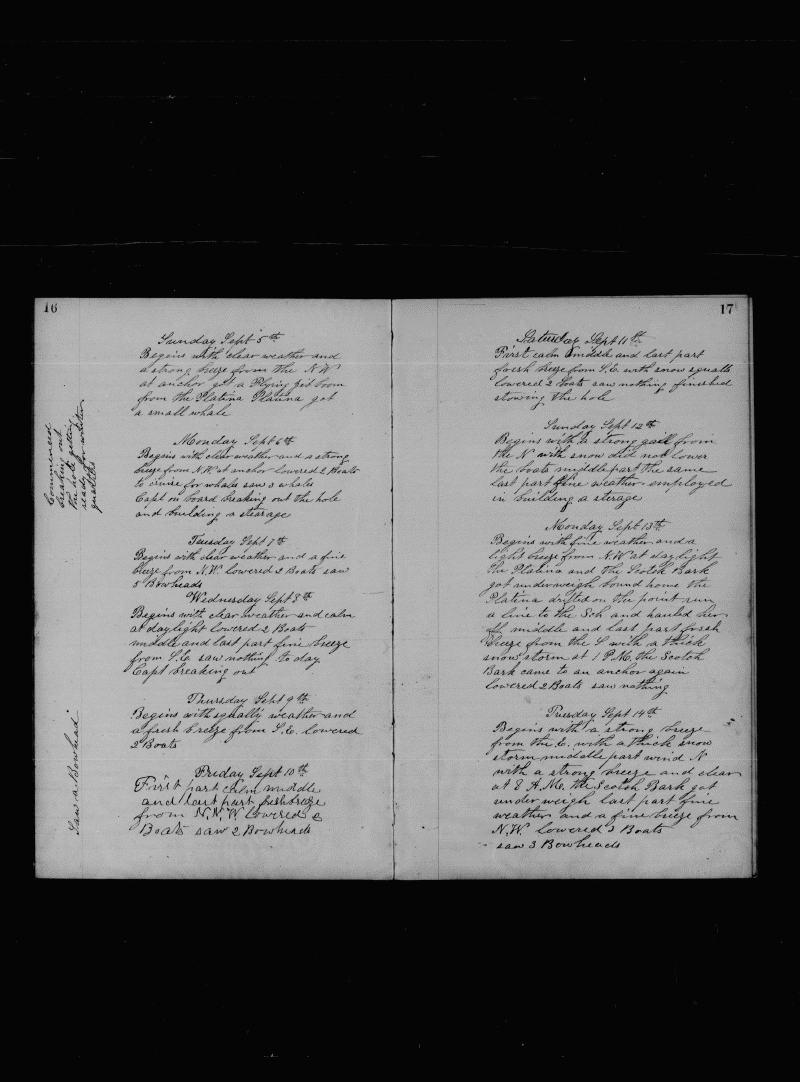 16
Sunday Sept 5th
Begins with clear weather and
a strong breeze from the N.W
at anchor got a Flying jib boom
from the Platina Platina got
a small whale
Commenced
breaking out
the hole getting
ready for winter
quarters
Monday Sept 6th
Begins with clear weather and a strong
breeze from N.W at anchor lowered 2 Boats
to cruise for whales saw 3 whales
Capt on board breaking out the hole
and building a stearage
Tuesday Sept 7th
Begins with clear weather and a fine
breeze from N.W. lowered 2 Boats saw
5 Bowheads
Wednesday Sept 8th
Begins with clear weather and calm
at daylight lowered 2 Boats
middle and last part fine breeze
from S.E. saw nothing to day
Capt breaking out
Thursday Sept 9th
Begins with squally weather and
a fresh breeze from S.E. lowered
2 Boats
Saw a Bowhead
Friday Sept 10th
First part calm middle
and last part fresh breeze
from N.N.W lowered 2
Boats saw 2 Bowheads
17
Saturday Sept 11th
First calm middle and last part
fresh breeze from S.E. with snow squalls
lowered 2 Boats saw nothing finished
stowing the hole
Sunday Sept 12th
Begins with a strong gall from
the N with snow did not lower
the boats middle part the same
last part fine weather employed
in building a sterage
Monday Sept 13th
Begins with fine weather and a
light breeze from N.W at daylight
the Platina and the Scotch Bark
got underweigh bound home the
Platina drifted on the point run
a line to the Sch and hauled her
off middle and last part fresh
breeze from the S with a thick
snow storm at 1 P.M. the Scotch
Bark came to an anchor again
lowered 2 Boats saw nothing
Tuesday Sept 14th
Begins with a strong breeze
from the E. with a thick snow
storm middle part wind N
with a strong breeze and clear
at 8 A.M. the Scotch Bark got
underweigh last part fine
weather and a fine breeze from
N.W. lowered 3 Boats
saw 3 Bowheads